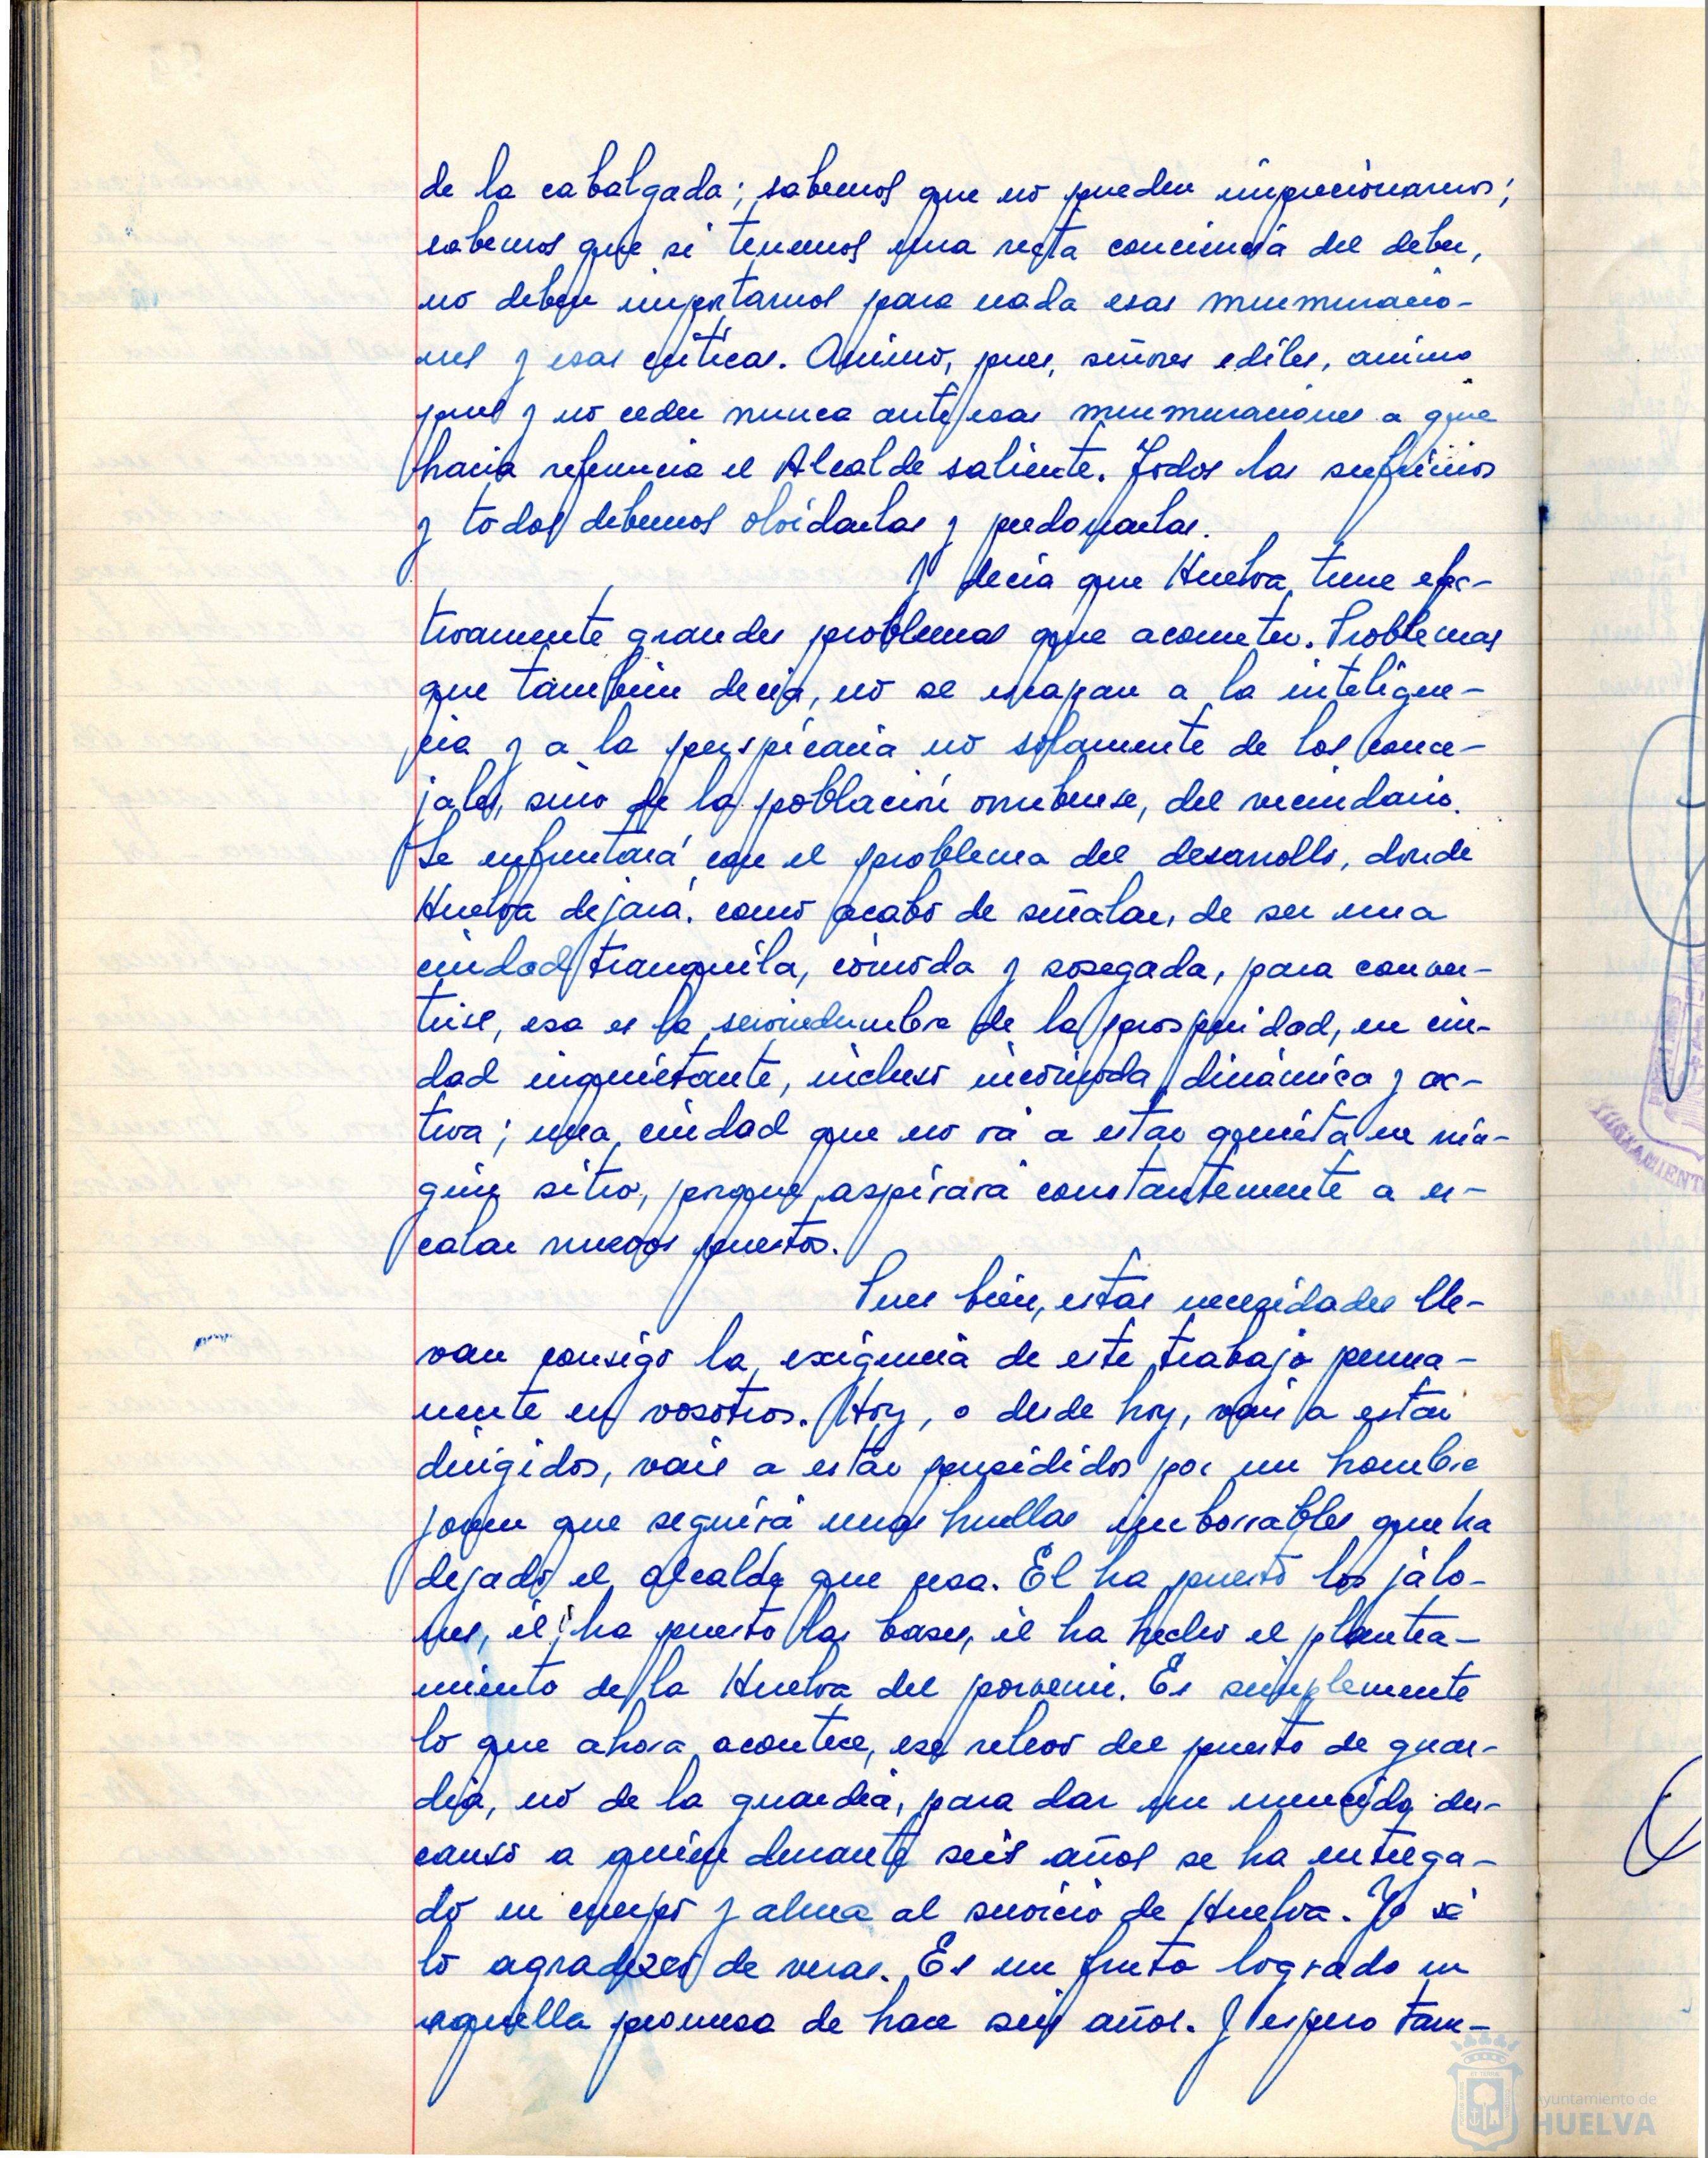 de la cabalgada; sabemos que no pueden impresionarnos;
sabemos que si tenemos una recta conciencia del deber,
no deben importarnos para nada esas murmuracio-
nes y esas críticas. Animo, pues, señores ediles, animo
pues y no ceder nunca ante esas murmuraciones a que
hacia referencia el Alcalde saliente. Todos las sufrimos
y todos debemos olvidarlas y perdonarlas.
Y decia que Huelva tiene efec-
tivamente grandes problemas que acometer. Problemas
que tambien decia, no se escapan a la inteligen-
cia y a la perspicacia no solamente de los conce-
jales, sino de la población onubense, del vecindario.
Se enfrentará con el problema del desarrollo, donde
Huelva dejará, como acabo de señalar, de ser una
ciudad tranquila, cómoda y sosegada, para conver-
tirse, esa es la servidumbre de la prosperidad, en ciu-
dad inquietante, incluso incómoda, dinámica y ac-
tiva; una ciudad que no vá a estar quieta en nin-
gún sitio, porque aspirará constantemente a es-
calar nuevos puestos.
Pues bien, estas necesidades lle-
van consigo la exigencia de este trabajo perma-
nente en vosotros. Hoy, o desde hoy, vais a estar
dirigidos, vais a estar presididos por un hombre
joven que seguirá unas huellas imborrables que ha
dejado el alcalde que cesa. El ha puesto los jalo-
nes, él ha puesto las bases, él ha hecho el plantea-
miento de la Huelva del porvenir. Es simplemente
lo que ahora acontece, ese relevo del puesto de guar-
dia, no de la guardia, para dar un merecido des-
canso a quién durante seis años se ha entrega-
do en cuerpo y alma al servicio de Huelva. Yo sé
lo agradezco de veras. Es un fruto logrado en
aquella promesa de hace seis años. Y espero tam-
AYUNTAMIENTO
Ayuntamiento de
HUELVA